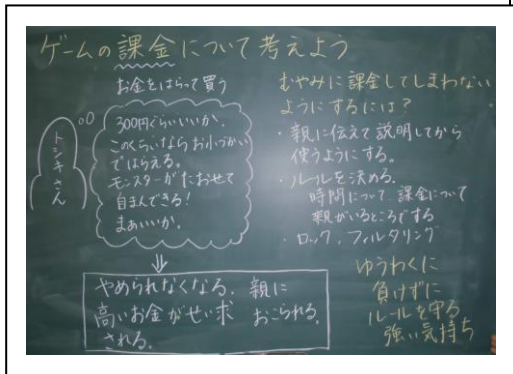 ゲームの課金について考えよう
お金をはらって買う
トシキさん
300円ぐらいいいか。
このくらいなら お小づかい
ではらえる。
モンスターがたおせて
自まんできる!
まぁいいか。
⇓
やめられなくなる。親に
高いお金がせい求 おこられる。
される。
むやみに課金してしまわない
ようにするには?
・親に伝えて説明してから
使うようにする。
・ルールを決める。
時間について 課金について
親がいるところでする
・ロック、フィルタリング
ゆうわくに
負けずに
ルールを守る
強い気持ち